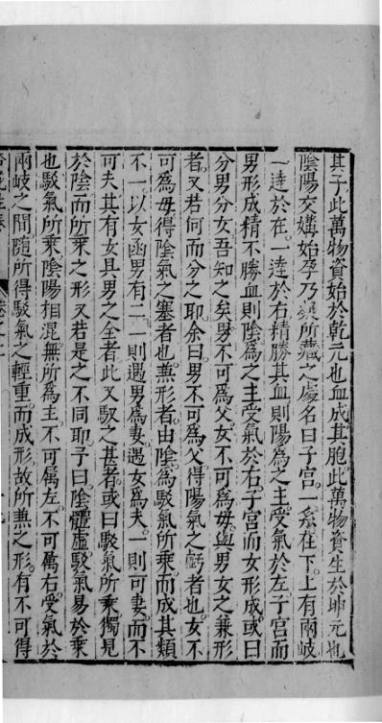 其子此萬物資始於乾元也血成其胞此萬物資生於坤元也
陰陽交媾始孕乃凝所藏之處名曰子宮一系在下上有兩岐
一達於左一達於右精勝其血則陽為之主受氣於左子宮而
男形成精不勝血則陰為之主受氣於右子宮而女形成或曰
分男分女吾知之矣男不可為父女不可為母與男女之兼形
者又若何而分之耶余曰男不可為父得陽氣之虧者也女不
可為母得陰氣之塞者也兼形者由陰為駁氣所乘而成其類
不一以女函男有二一則遇男為妻遇女為夫一則可妻而不
可夫其有女具男之全者此又駁之甚者或曰駁氣所乘獨見
於陰而所乘之形又若是之不同耶予曰陰體虛駁氣易於乘
也駁氣所乘陰陽相混無所為主不可屬左不可屬右受氣於
兩岐之間隨所得駁氣之輕重而成形故所兼之形有不可得